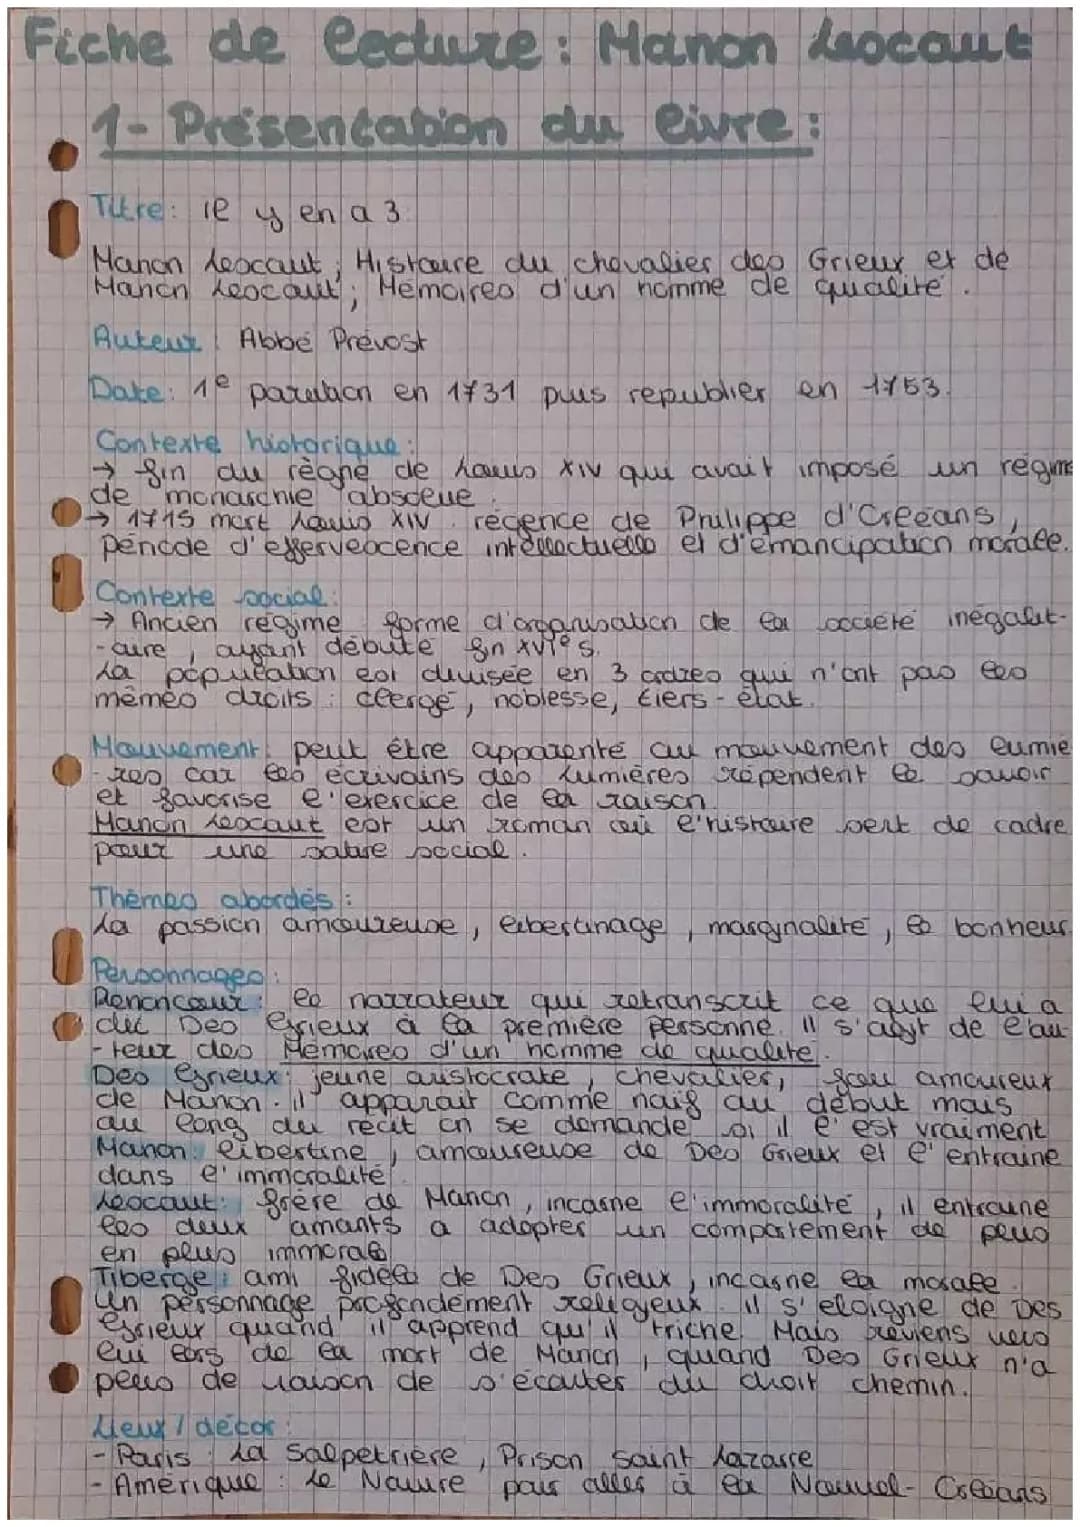 Fiche de lecture : Manon Lescaut
1- Présentation du livre :
Titre : il y en a 3
Manon Lescaut ; Histoire du chevalier des Grieux et de
Manon Lescaut ; Mémoires d'un homme de qualité .
Auteur : Abbé Prévost
Date : 1e parution en 1731 puis republier en 1753.
Contexte historique :
→ fin du règne de Louis XIV qui avait imposé un régime
de monarchie absolue .
→ 1715 mort Louis XIV . régence de Philippe d'Orléans ,
période d'effervescence intellectuelle et d'émancipation morale.
Contexte social :
→ Ancien régime forme d'organisation de la société inégalit-
-aire , ayant débuté fin XVIe s.
La population est divisée en 3 ordres qui n'ont pas les
mêmes droits : clergé , noblesse, tiers - état .
Mouvement : peut être apparenté au mouvement des lumiè
-res car les écrivains des lumières répendent le savoir
et favorise l'exercice de la raison.
Manon Lescaut est un roman où l'histoire sert de cadre
pour une satire social .
Thèmes abordés :
La passion amoureuse , libertinage , marginalité , le bonheur
Personnages :
Renoncour : le narrateur qui retranscrit ce que lui a
dit Des Grieux à la première personne. il s'agit de l'au
-teur des Mémoires d'un homme de qualité .
Des Grieux : jeune aristocrate , chevalier, fou amoureux
de Manon . il apparait comme naif au début mais
au long du récit on se demande si il l'est vraiment
Manon : libertine , amoureuse de Des Grieux et l'entraine
dans l'immoralité .
Lescaut : frère de Manon , incarne l'immoralité , il entraine
les deux amants a adopter un comportement de plus
en plus immorale
Tiberge : ami fidèle de Des Grieux , incarne la morale .
Un personnage profondément religieux . il s'éloigne de Des
Grieux quand il apprend qu'il triche. Mais reviens vers
lui lors de la mort de Manon , quand Des Grieux n'a
plus de raison de s'écarter du droit chemin.
Lieux / décor :
- Paris : La Salpetrière , Prison Saint Lazarre
- Amérique : Le Navire pour aller à la Nouvel- Orléans